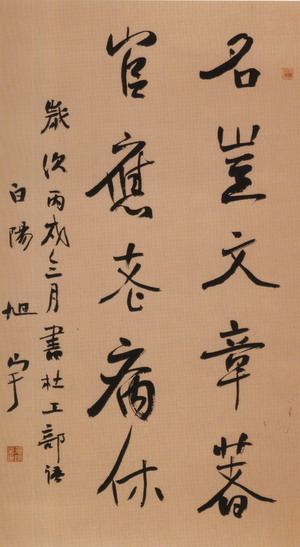 名豈文章著
官應老病休
歲次丙戌之三月書杜工部語
白陽旭宇